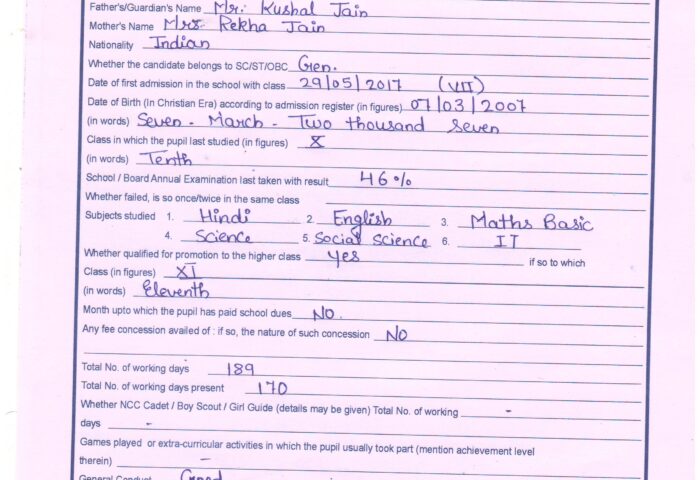 Father's/Guardian's Name Mr. Kushal Jain
Mother's Name Mrs. Rekha Jain
Nationality Indian
Whether the candidate belongs to SC/ST/OBC Gen.
Date of first admission in the school with class 29/05/2017 (VII)
Date of Birth (In Christian Era) according to admission register (in figures) 07/03/2007
(in words) Seven - March - Two thousand seven
Class in which the pupil last studied (in figures) X
(in words) Tenth
School / Board Annual Examination last taken with result 46%
Whether failed, is so once/twice in the same class
Subjects studied 1. Hindi 2. English 3. Maths Basic
4. Science 5. Social Science 6. IT
Whether qualified for promotion to the higher class yes if so to which
Class (in figures) XI
(in words) Eleventh
Month upto which the pupil has paid school dues No.
Any fee concession availed of : if so, the nature of such concession No
Total No. of working days 189
Total No. of working days present 170
Whether NCC Cadet / Boy Scout / Girl Guide (details may be given) Total No. of working -
days -
Games played or extra-curricular activities in which the pupil usually took part (mention achievement level
therein) -
General Conduct Good